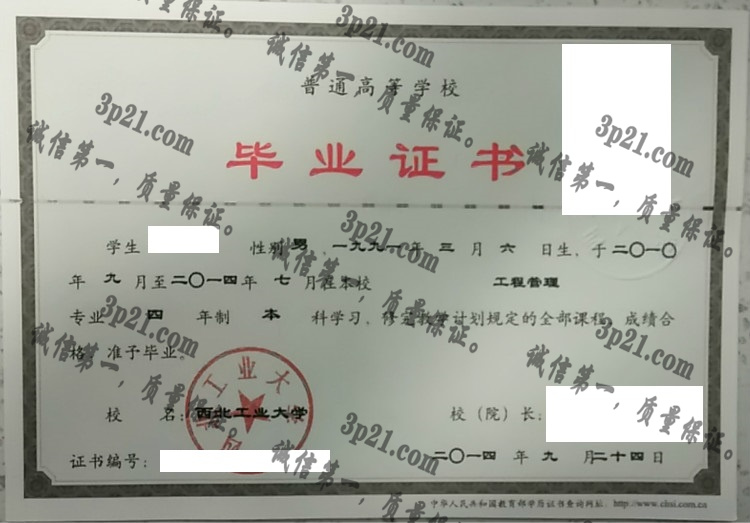 普通高等学校
毕业证书
学生 性别 男, 一九九一年 三 月 六 日生, 于二〇一〇
年 九 月至二〇一四年 七 月在本校 工程管理
专业 四 年制 本 科学习, 修完教学计划规定的全部课程, 成绩合
格, 准予毕业。
校 名: 西北工业大学 校(院)长:
证书编号: 二〇一四 年 九 月二十四日
中华人民共和国教育部学历证书查询网址: http://www.chsi.com.cn
工业大学
3p21.com
诚信第一,质量保证。
3p21.com
诚信第一,质量保证。
3p21.com
诚信第一,质量保证。
3p21.com
诚信第一,质量保证。
3p21.com
诚信第一,质量保证。
3p21.com
诚信第一,质量保证。
3p21.com
诚信第一,质量保证。
3p21.com
诚信第一,质量保证。